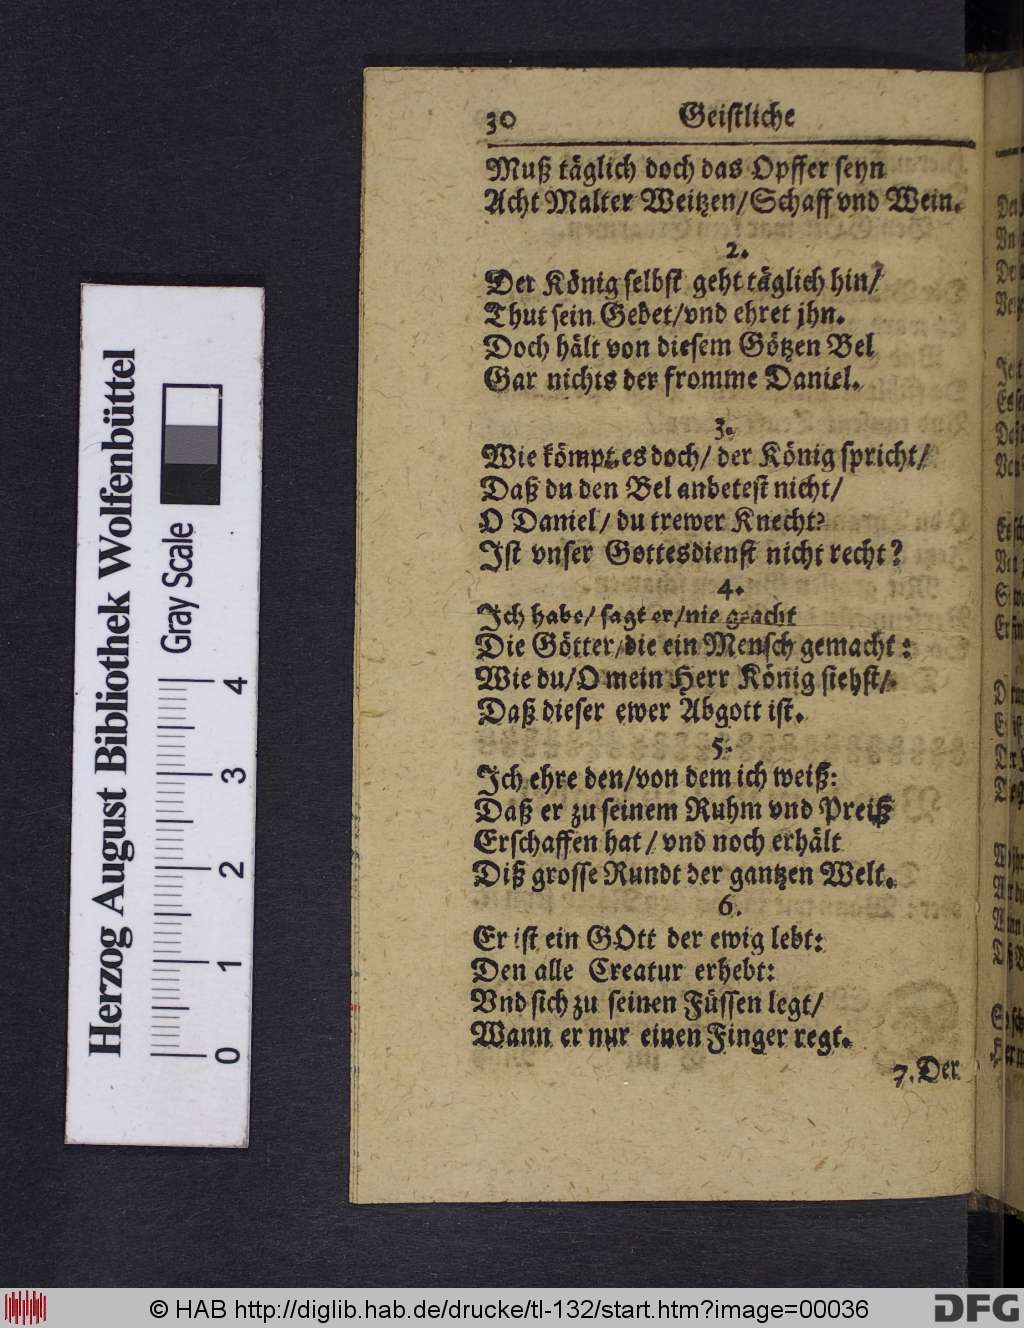 30 Geistliche
Muß täglich doch das Opffer seyn
Acht Malter Weitzen/Schaff vnd Wein.
2.
Der König selbst geht täglich hin/
Thut sein Gebet/vnd ehret jhn.
Doch hält von diesem Götzen Bel
Gar nichts der fromme Daniel.
3.
Wie kömpt es doch/ der König spricht/
Daß du den Bel anbetest nicht/
O Daniel/ du trewer Knecht?
Ist vnser Gottesdienst nicht recht?
4.
Ich habe/ sagt er/nie geacht
Die Götter/die ein Mensch gemacht:
Wie du/O mein Herr König siehst/
Daß dieser ewer Abgott ist.
5.
Ich ehre den/von dem ich weiß:
Daß er zu seinem Ruhm vnd Preiß
Erschaffen hat/ vnd noch erhält
Diß grosse Rundt der gantzen Welt.
6.
Er ist ein GOtt der ewig lebt:
Den alle Creatur erhebt:
Vnd sich zu seinen Füssen legt/
Wann er nur einen Finger regt.
7. Der
Herzog August Bibliothek Wolfenbüttel
Gray Scale
0 1 2 3 4
© HAB http://diglib.hab.de/drucke/tl-132/start.htm?image=00036
DFG